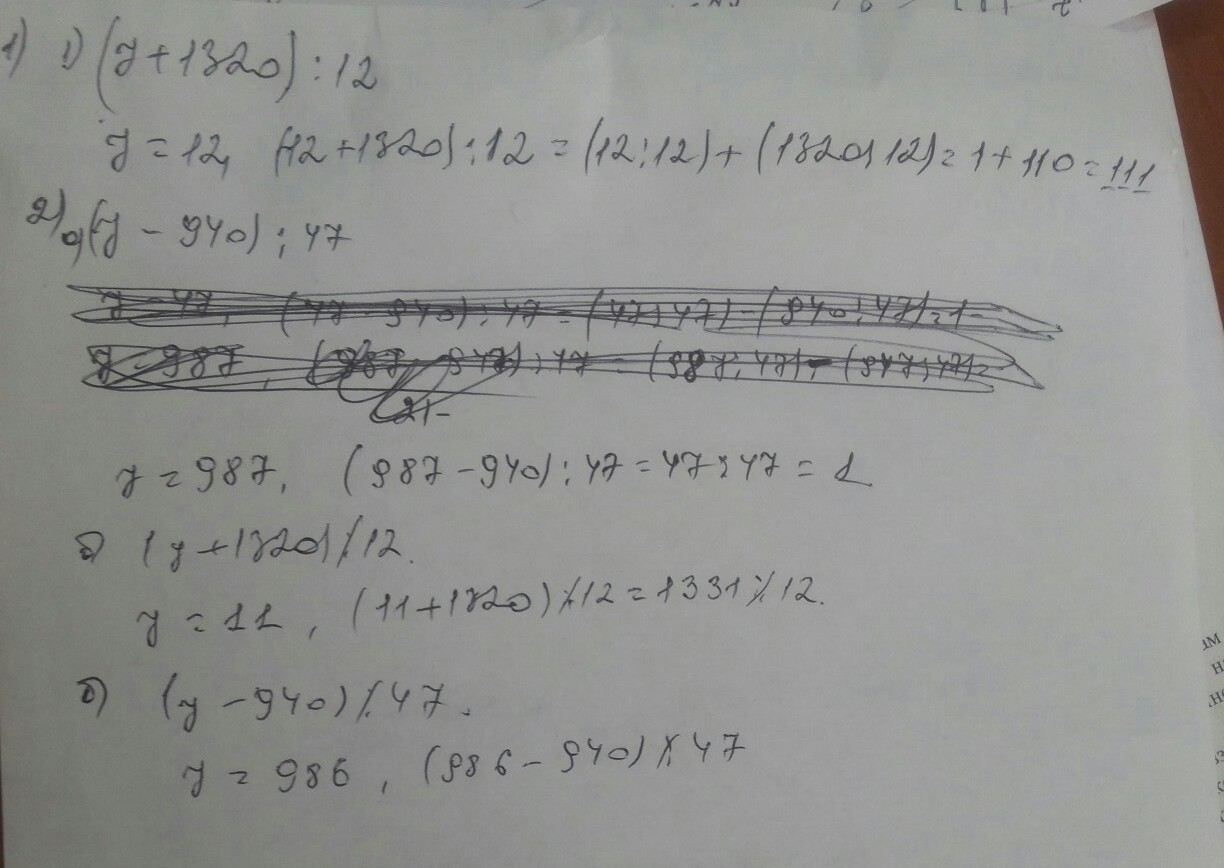 1) 1) (y + 1320) : 12
y = 12, (12 + 1320) : 12 = (12 : 12) + (1320 : 12) = 1 + 110 = 111
2) a) (y - 940) : 47
y = 47, (47 - 940) : 47 = (47 : 47) - (940 : 47) = 1 -
y = 987, (987 - 947) : 47 = (987 : 47) - (947 : 47) =
21 -
y = 987, (987 - 940) : 47 = 47 : 47 = 1
б) (y + 1320) ⋮̸ 12.
y = 11, (11 + 1320) ⋮̸ 12 = 1331 ⋮̸ 12.
б) (y - 940) ⋮̸ 47.
y = 986, (986 - 940) ⋮̸ 47